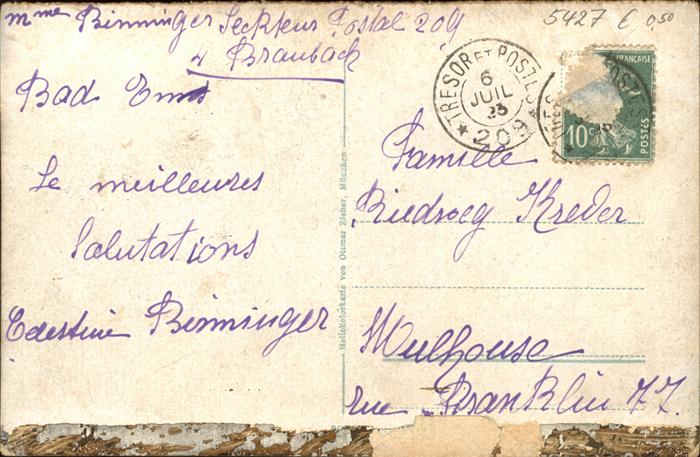 mme Binninger Seckteur Postal 209
à Braubach
Bad Ems
Le meilleures
Salutations
Celestine Binninger
5427 € 0,50
TRESOR ET POSTES
6
JUIL
23
★ 209 ★
FRANÇAISE
10c
POSTES
Famille
Riedweg Kreder
Mulhouse
rue Franklin 77.
Heliokolorkarte von Ottmar Zieher, München